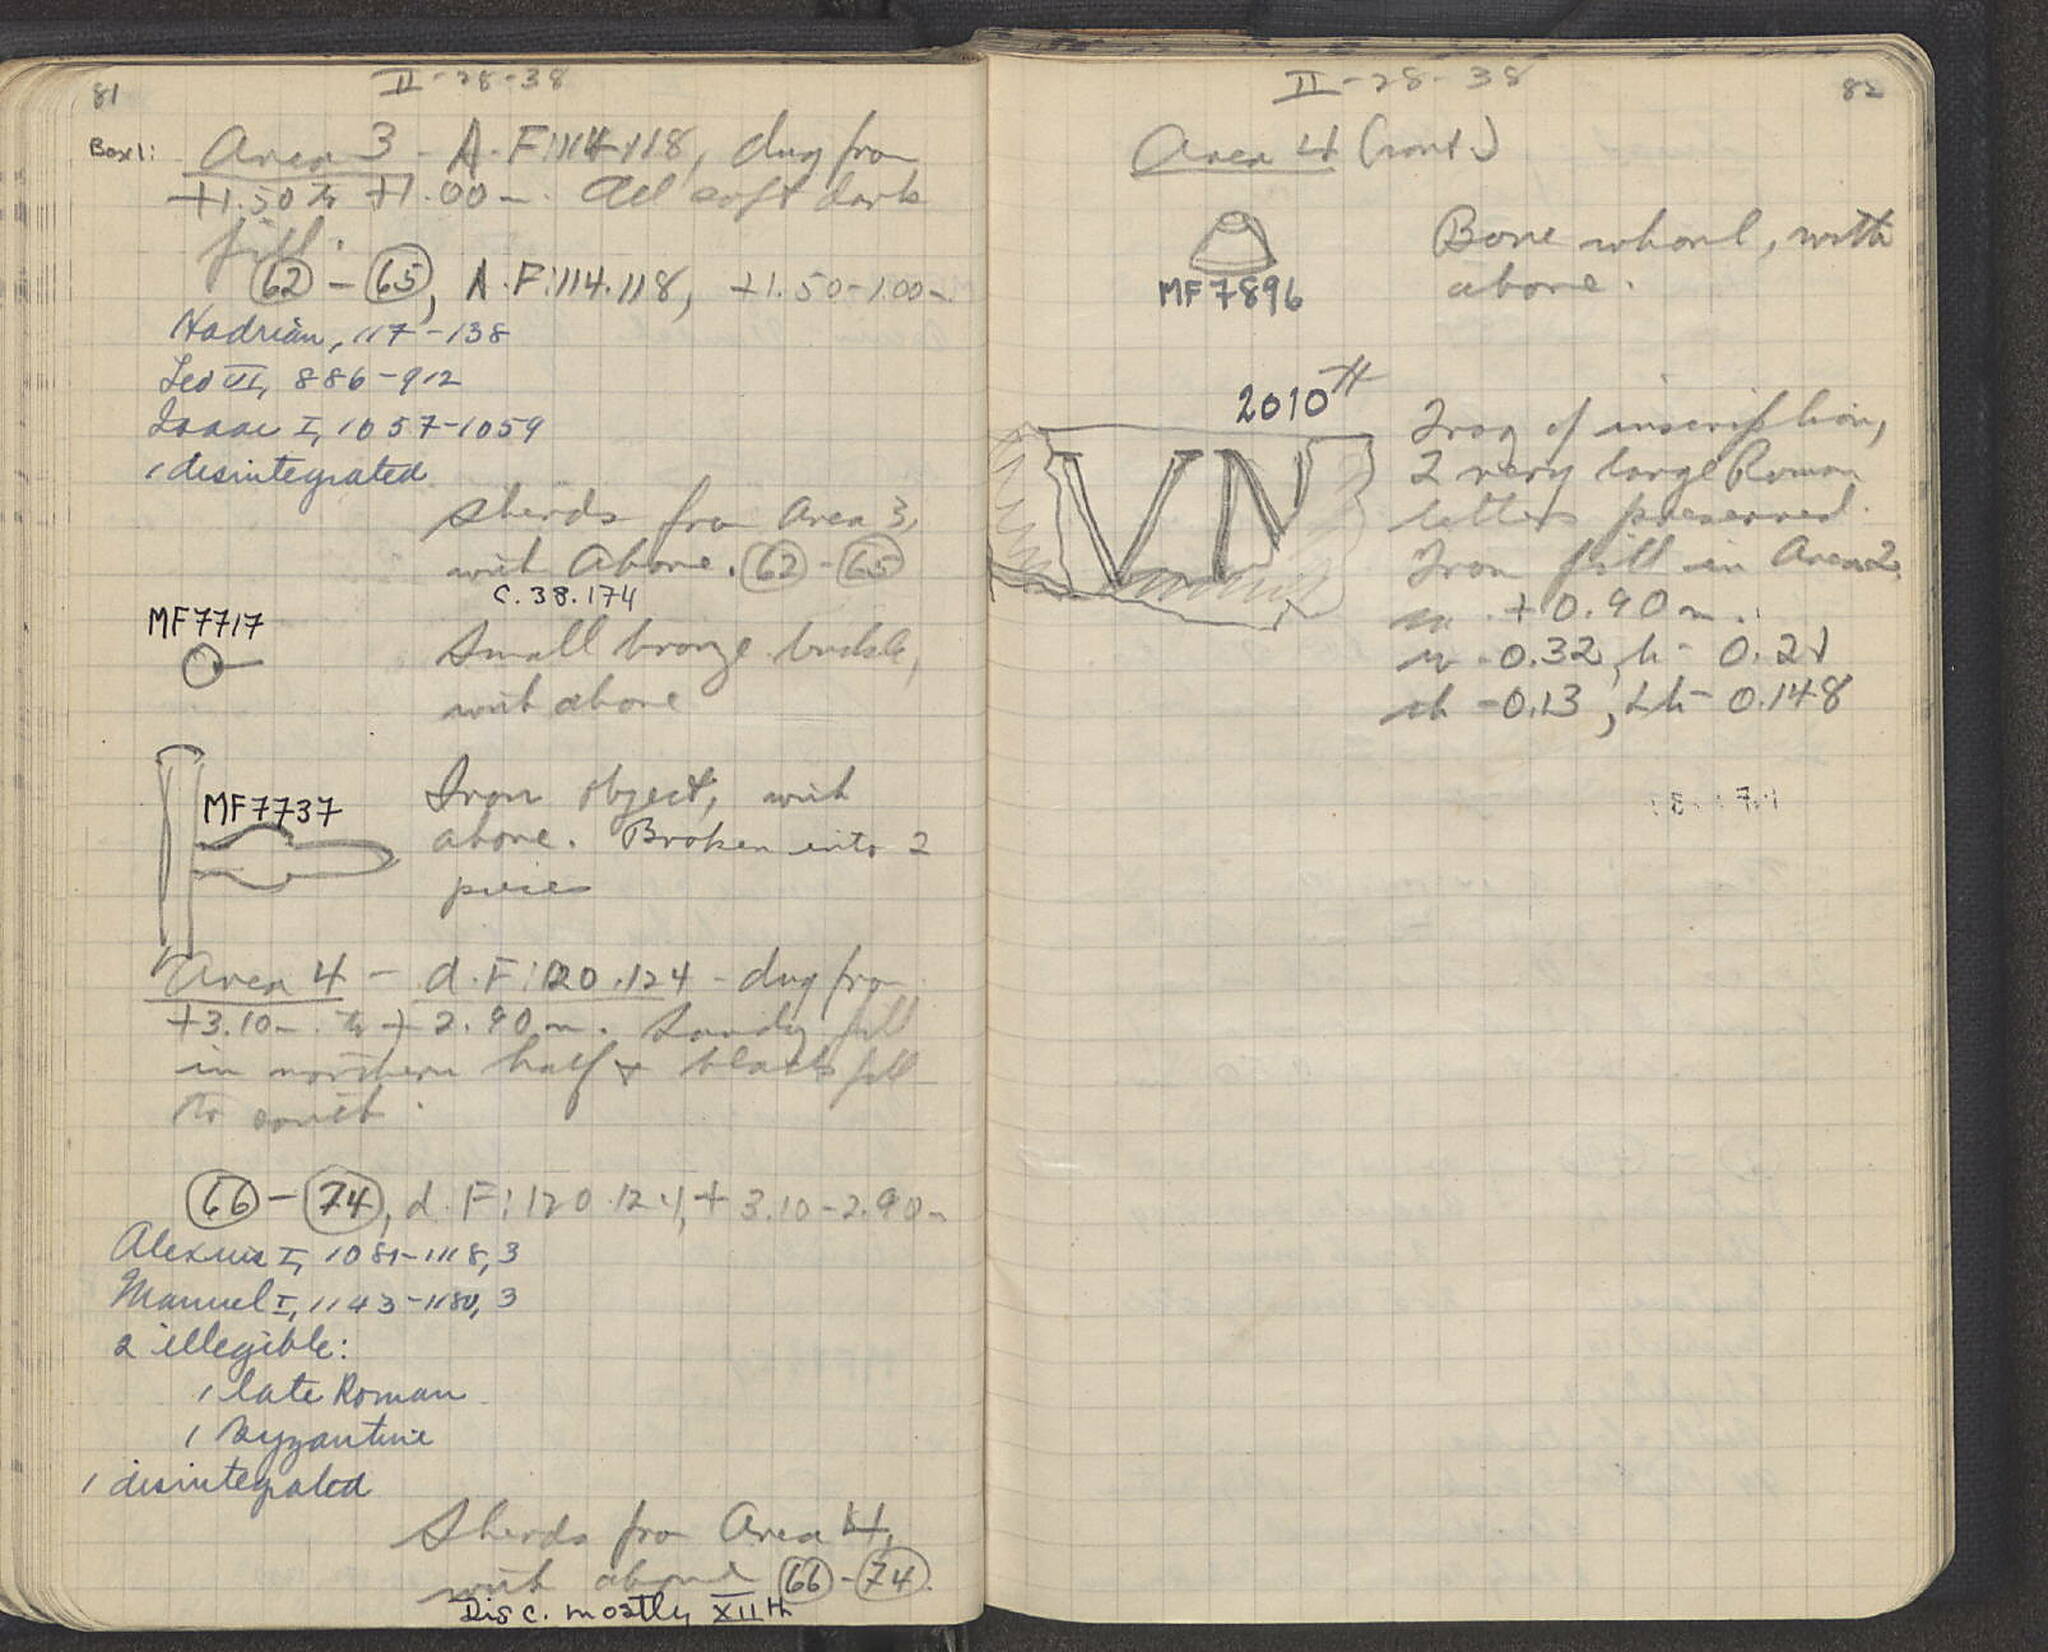 81
II-28-38
Box 1:
Area 3 - A.F:114.118, dug from
+1.50 to +1.00 m. All soft dark
fill.
62 - 65, A.F:114.118, +1.50-1.00 m.
Hadrian, 117-138
Leo VI, 886-912
Isaac I, 1057-1059
1 disintegrated
Sherds from Area 3,
with above. 62 - 65
C.38.174
MF7717
Small bronze buckle,
with above
MF7737
Iron object, with
above. Broken into 2
pieces
Area 4 - d.F:120.124 - dug from
+3.10 m. to + 2.90 m. Sandy fill
in northern half & black fill
to south.
66 - 74, d.F:120.124, + 3.10-2.90 m
Alexius I, 1081-1118, 3
Manuel I, 1143-1180, 3
2 illegible:
1 late Roman
1 Byzantine
1 disintegrated
Sherds from Area 4,
with above 66 - 74.
Disc. mostly XIIth
II-28-38
82
Area 4 (cont.)
Bone whorl, with
above.
MF7896
2010
VN
Frag of inscription,
2 very large Roman
letters preserved.
From fill in Area 2,
+0.90 m.
w - 0.32, h - 0.21
th - 0.13, Lh - 0.148